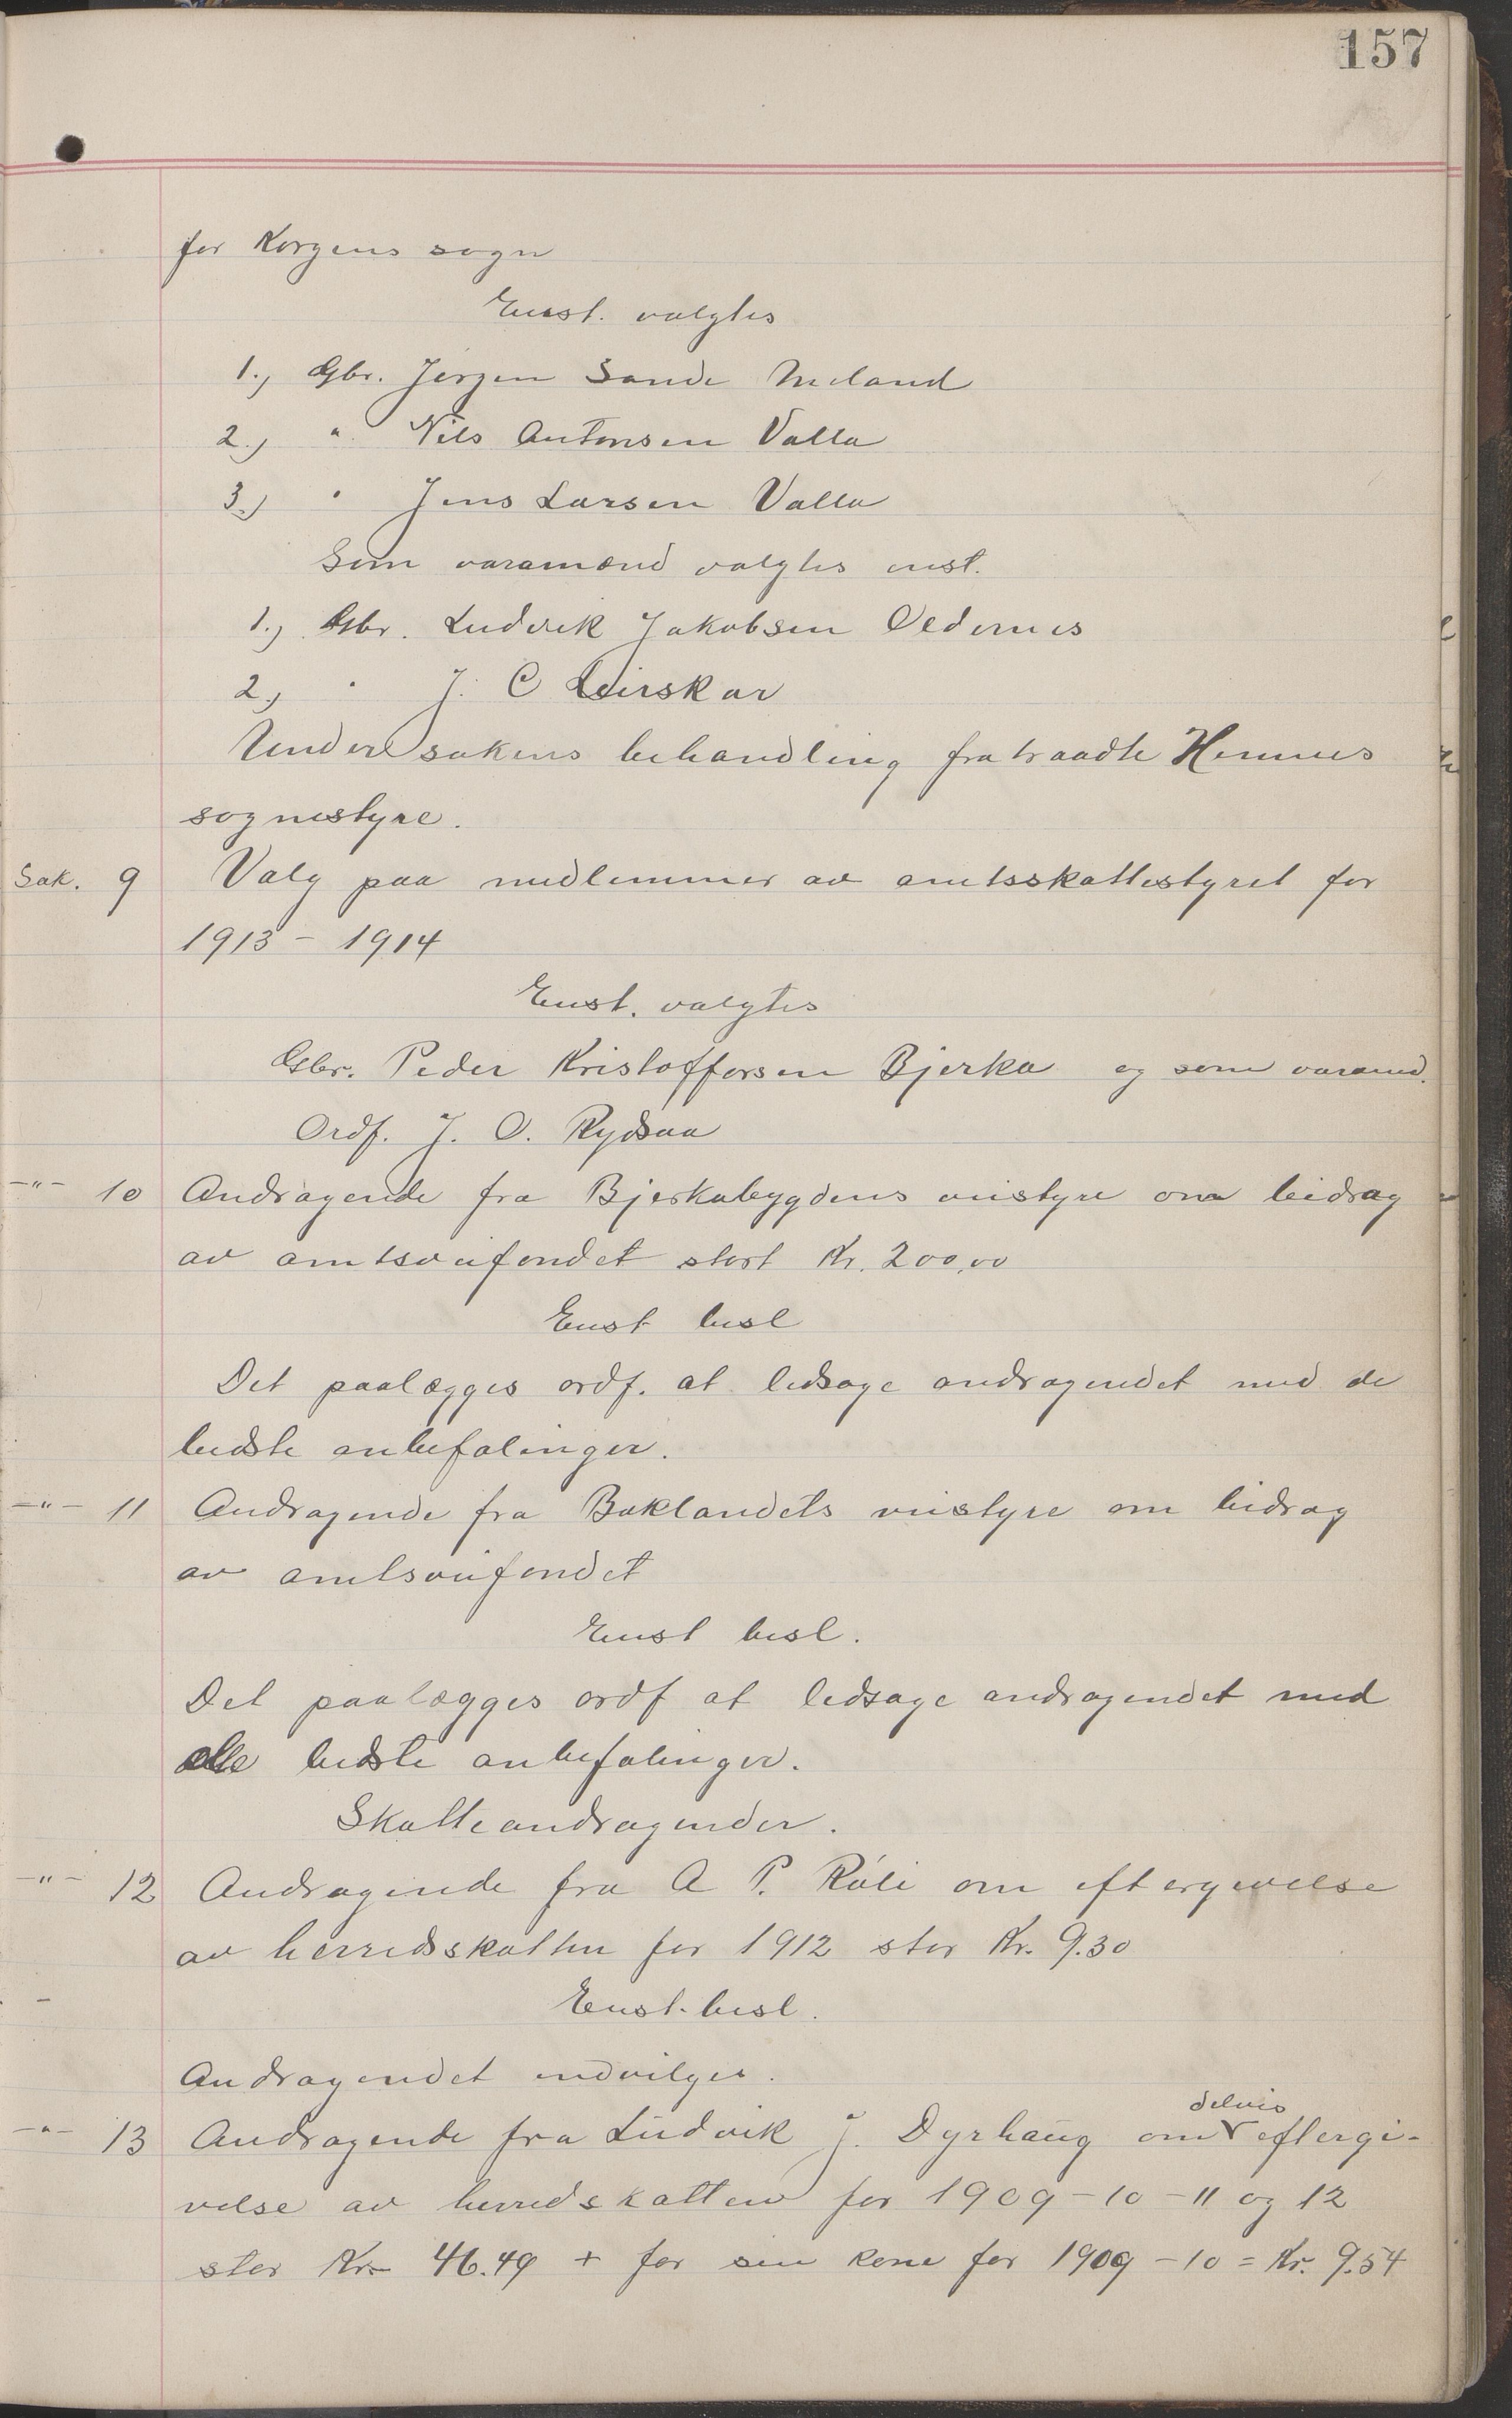 157
for Korgens sogn
Enst. valgtes
1.) Gbr. Jørgen Sande Meland
2.) " Nils Antonsen Valla
3.) " Jens Larsen Valla
Som varamænd valgtes enst.
1.) Gbr. Ludvik Jakobsen Oldernes
2.) " J. C Leirskar
Under sakens behandling fratraadte Hemnes
sognestyre.
Sak. 9 Valg paa medlemmer av amtsskattestyret for
1913 - 1914
Enst. valgtes
Gbr. Peder Kristoffersen Bjerka og som varamd.
Ordf. J. O. Rydsaa
-"- 10 Andragende fra Bjerkabygdens veistyre om bidrag
av amtsveifondet stort Kr. 200,00
Enst besl
Det paalægges ordf. at ledsage andragendet med de
bedste anbefalinger.
-"- 11 Andragende fra Baklandets veistyre om bidrag
av amtsveifondet
Enst besl.
Det paalægges ordf at ledsage andragendet med
de bedste anbefalinger.
Skatteandragender.
-"- 12 Andragende fra A P. Røli om eftergivelse
av herredsskatten for 1912 stor Kr. 9.30
Enst. besl.
Andragendet indvilges.
delvis
-"- 13 Andragende fra Ludvik J. Dyrhaug om eftergi-
velse av herredskatten for 1909 - 10 - 11 og 12
stor Kr. 46.49 + for sin kone for 1909 - 10 = Kr. 9.54